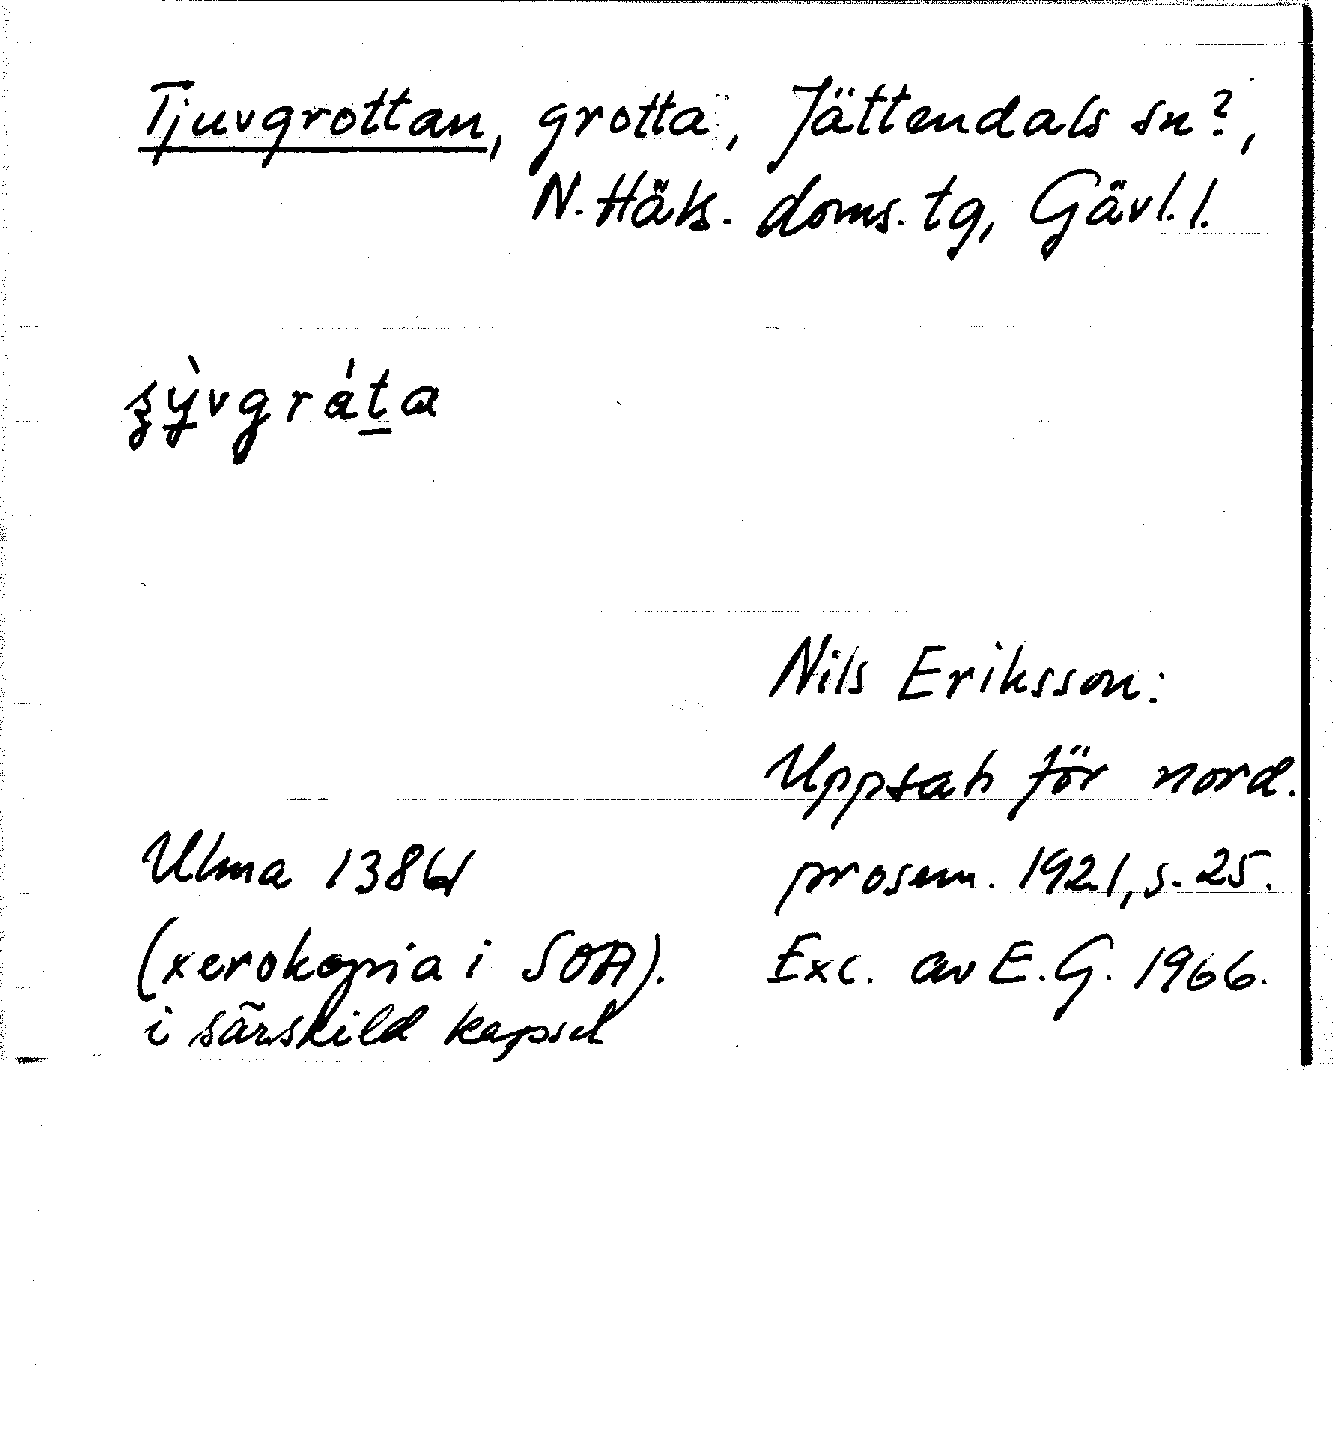 Tjuvgrottan, grotta, Jättendals sn?,
N. Häls. doms. tg, Gävl. l.
Nils Eriksson:
Uppsats för nord.
prosem. 1921, s. 25.
Exc. av E.G. 1966.
Ulma 1386
(xerokopia i SOA).
i särskild kapsel